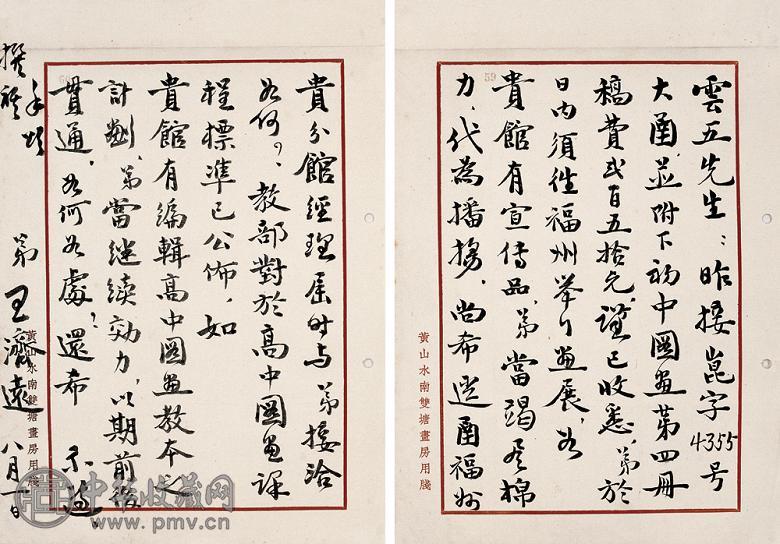 雲五先生：昨接崑字4355号
大函，並附下初中圖画第四冊
稿費弍百五拾元，謹已收悉，弟於
日内須往福州举行画展，如
貴館有宣傳品，弟當竭尽棉
力，代為播揚，尚希迳函福州
黃山水南雙塘畫房用牋
59
貴分館經理屆时与弟接洽
如何？，教部對於高中圖画課
程標準已公佈，如
貴館有編輯高中圖画教本之
計劃，弟當继续効力，以期前後
貫通，如何如處？還希 示遵。
手頌
撰祺
弟 王濟遠 八月一日
黃山水南雙塘畫房用牋
中华收藏网
www.pmv.cn